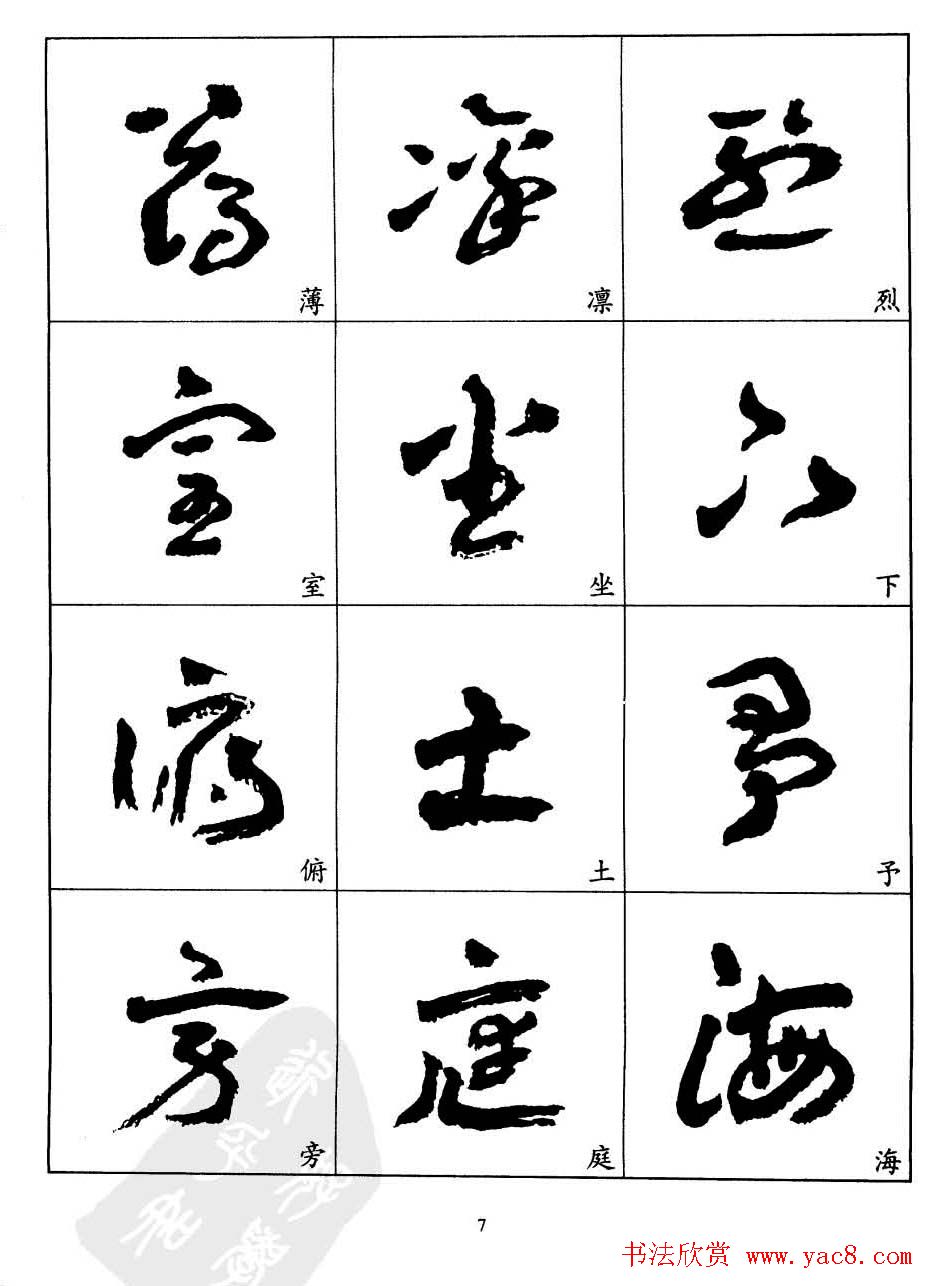 薄 凛 烈
室 坐 下
俯 土 予
旁 庭 海
7
书法欣赏 www.yac8.com